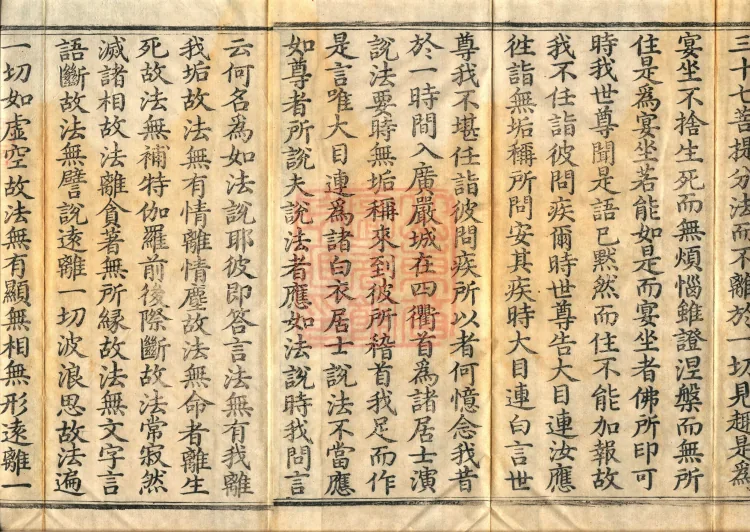 三十七菩提分法而不離於一切見趣是爲
宴坐不捨生死而無煩惱雖證涅槃而無所
住是爲宴坐若能如是而宴坐者佛所印可
時我世尊聞是語已黙然而住不能加報故
我不任詣彼問疾爾時世尊告大目連汝應
徃詣無垢稱所問安其疾時大目連白言世
尊我不堪任詣彼問疾所以者何憶念我昔
於一時間入廣嚴城在四衢首爲諸居士演
說法要時無垢稱來到彼所稽首我足而作
是言唯大目連爲諸白衣居士說法不當應
如尊者所說夫說法者應如法說時我問言
云何名爲如法說耶彼即答言法無有我離
我垢故法無有情離情塵故法無命者離生
死故法無補特伽羅前後際斷故法常寂然
滅諸相故法離貪著無所緣故法無文字言
語斷故法無譬說遠離一切波浪思故法遍
一切如虛空故法無有顯無相無形遠離一